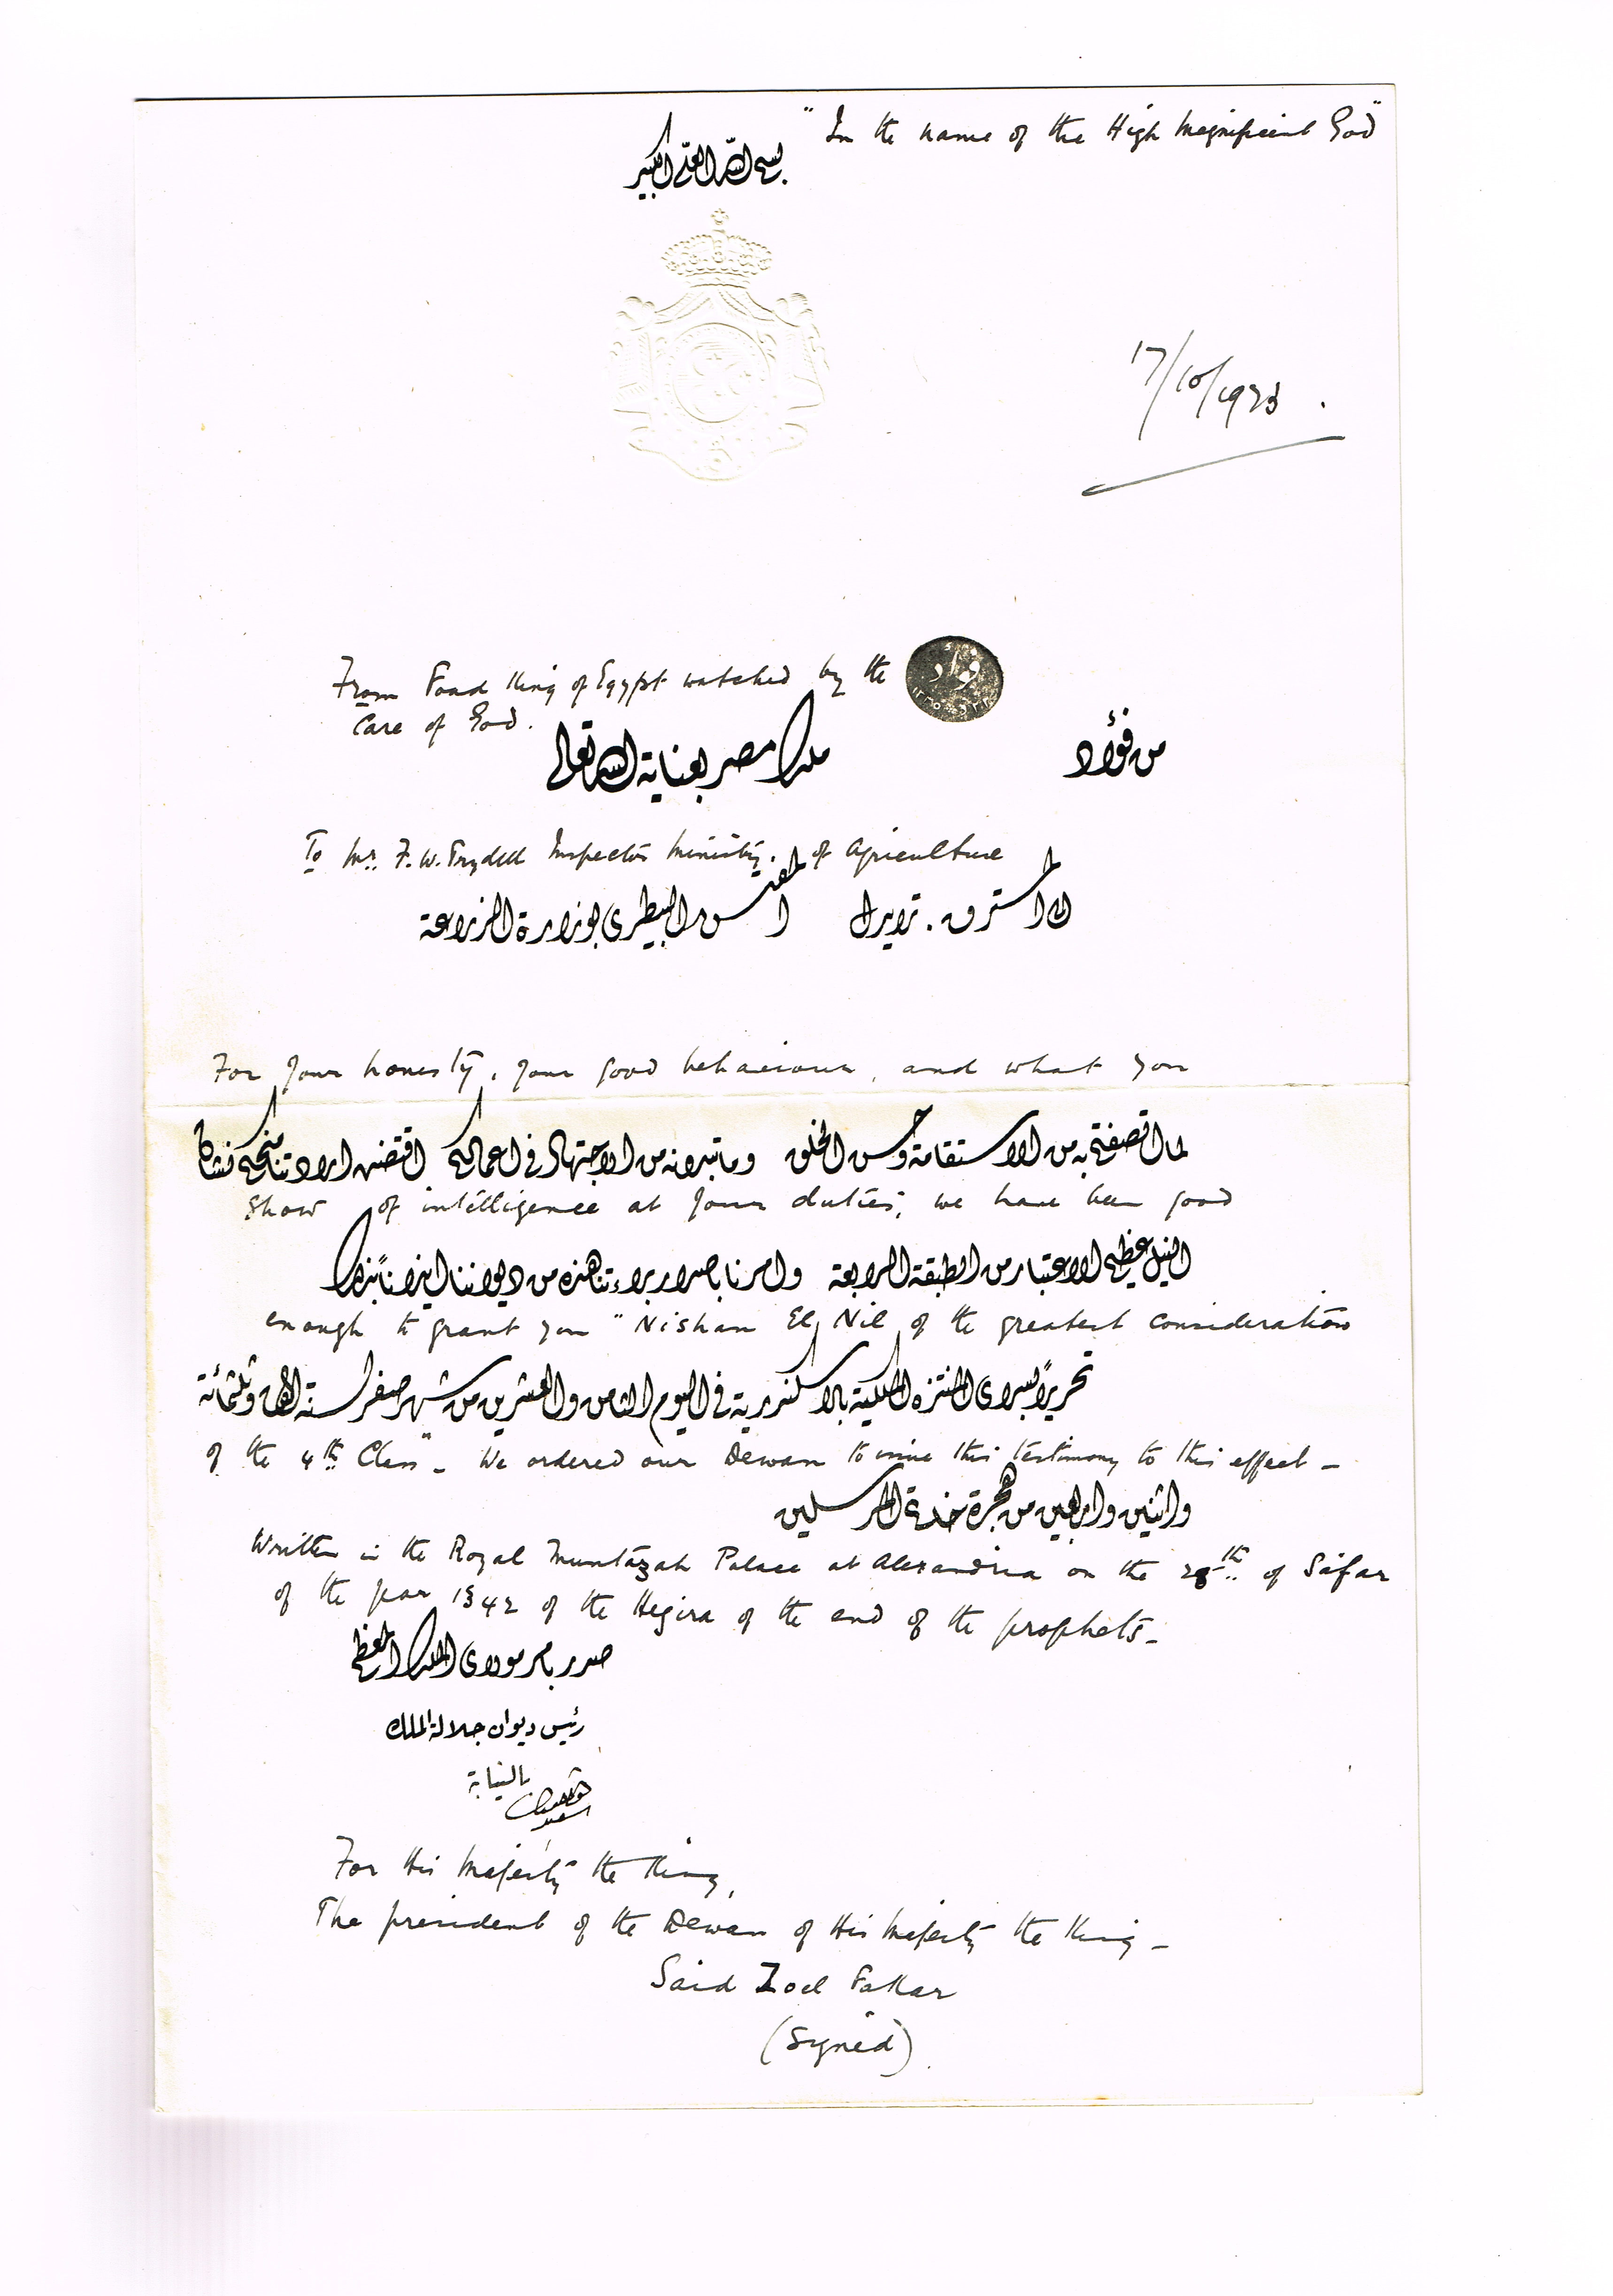 "In the name of the High Magnificent God"
بسم الله العلي الكبير
17/10/1923.
From Foad King of Egypt watched by the
Care of God.
فؤاد
من فؤاد ملك مصر بعناية الله تعالى
To Mr. F. W. Trydell Inspector Ministry of Agriculture
الى المستر ف. تريدل المفتش البيطرى بوزارة الزراعة
For your honesty, your good behaviour, and what you
لما اتصفتم به من الاستقامة وحسن الخلق وما تبدونه من الاجتهاد في اعمالكم اقتضت ارادتنا منحكم نشان
show of intelligence at your duties, we have been good
النيل عظيم الاعتبار من الطبقة الرابعة وامرنا باصدار براءتنا هذه من ديواننا ايذانا بذلك
enough to grant you "Nishan El Nil of the greatest consideration
تحريرًا بسراى المنتزه الملكية بالاسكندرية في اليوم الثامن والعشرين من شهر صفر لسنة الف وثلثمائة
of the 4th Class" - We ordered our Dewan to issue this testimony to this effect -
واثنين واربعين من هجرة خاتم المرسلين
Written in the Royal Muntazah Palace at Alexandria on the 28th of Safar
of the year 1342 of the Hegira of the end of the prophets -
صدر بامر مولاى الملك المعظم
رئيس ديوان جلالة الملك
بالنيابة
For His Majesty the King,
The president of the Dewan of His Majesty the King -
Said Zoel Fakar
(Signed)